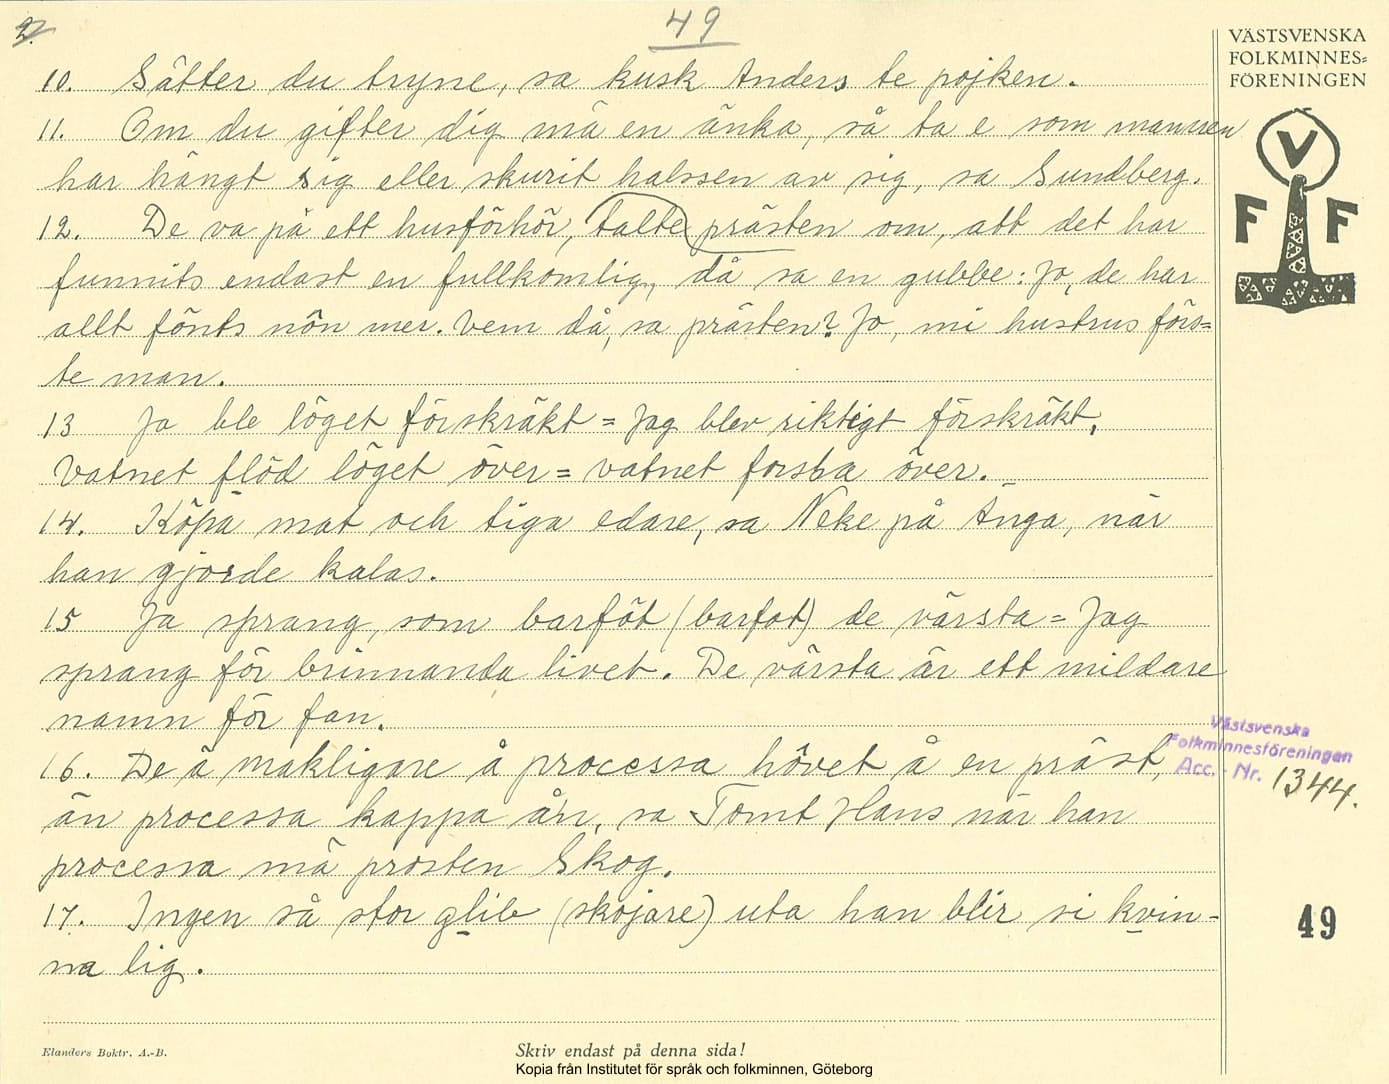 2.
49
VÄSTSVENSKA
FOLKMINNES=
FÖRENINGEN
V
F F
10. Sätter du tryne, sa kusk Anders te pojken.
11. Om du gifter dig mä en änka, så ta e som mannen
har hängt sig eller skurit halssen av sig, sa Sundberg.
12. De va på ett husförhör, talte prästen om, att det har
funnits endast en fullkomlig, då sa en gubbe: Jo, de har
allt fönts nôn mer. Vem då, sa prästen? Jo, mi hustrus förs=
te man.
13 Ja ble löget förskräkt = Jag blev riktigt förskräkt,
Vatnet flöd löget över = vatnet forsta över.
14. Köpa mat och tiga edare, sa Neke på Änga, när
han gjorde kalas.
15 Ja sprang, som barföt (barfot) de värsta = Jag
sprang för brinnanda livet. De värsta är ett mildare
namn för fan.
16. De ä makligare å processa hôvet å en präst,
än processa kappa ån, sa Tomt Hans när han
processa mä prosten Skog.
17. Ingen så stor glib (skojare) uta han blir si kvin-
na lig.
Västsvenska
Folkminnesföreningen
Acc. - Nr. 1344.
49
Elanders Boktr. A.-B.
Skriv endast på denna sida!
Kopia från Institutet för språk och folkminnen, Göteborg